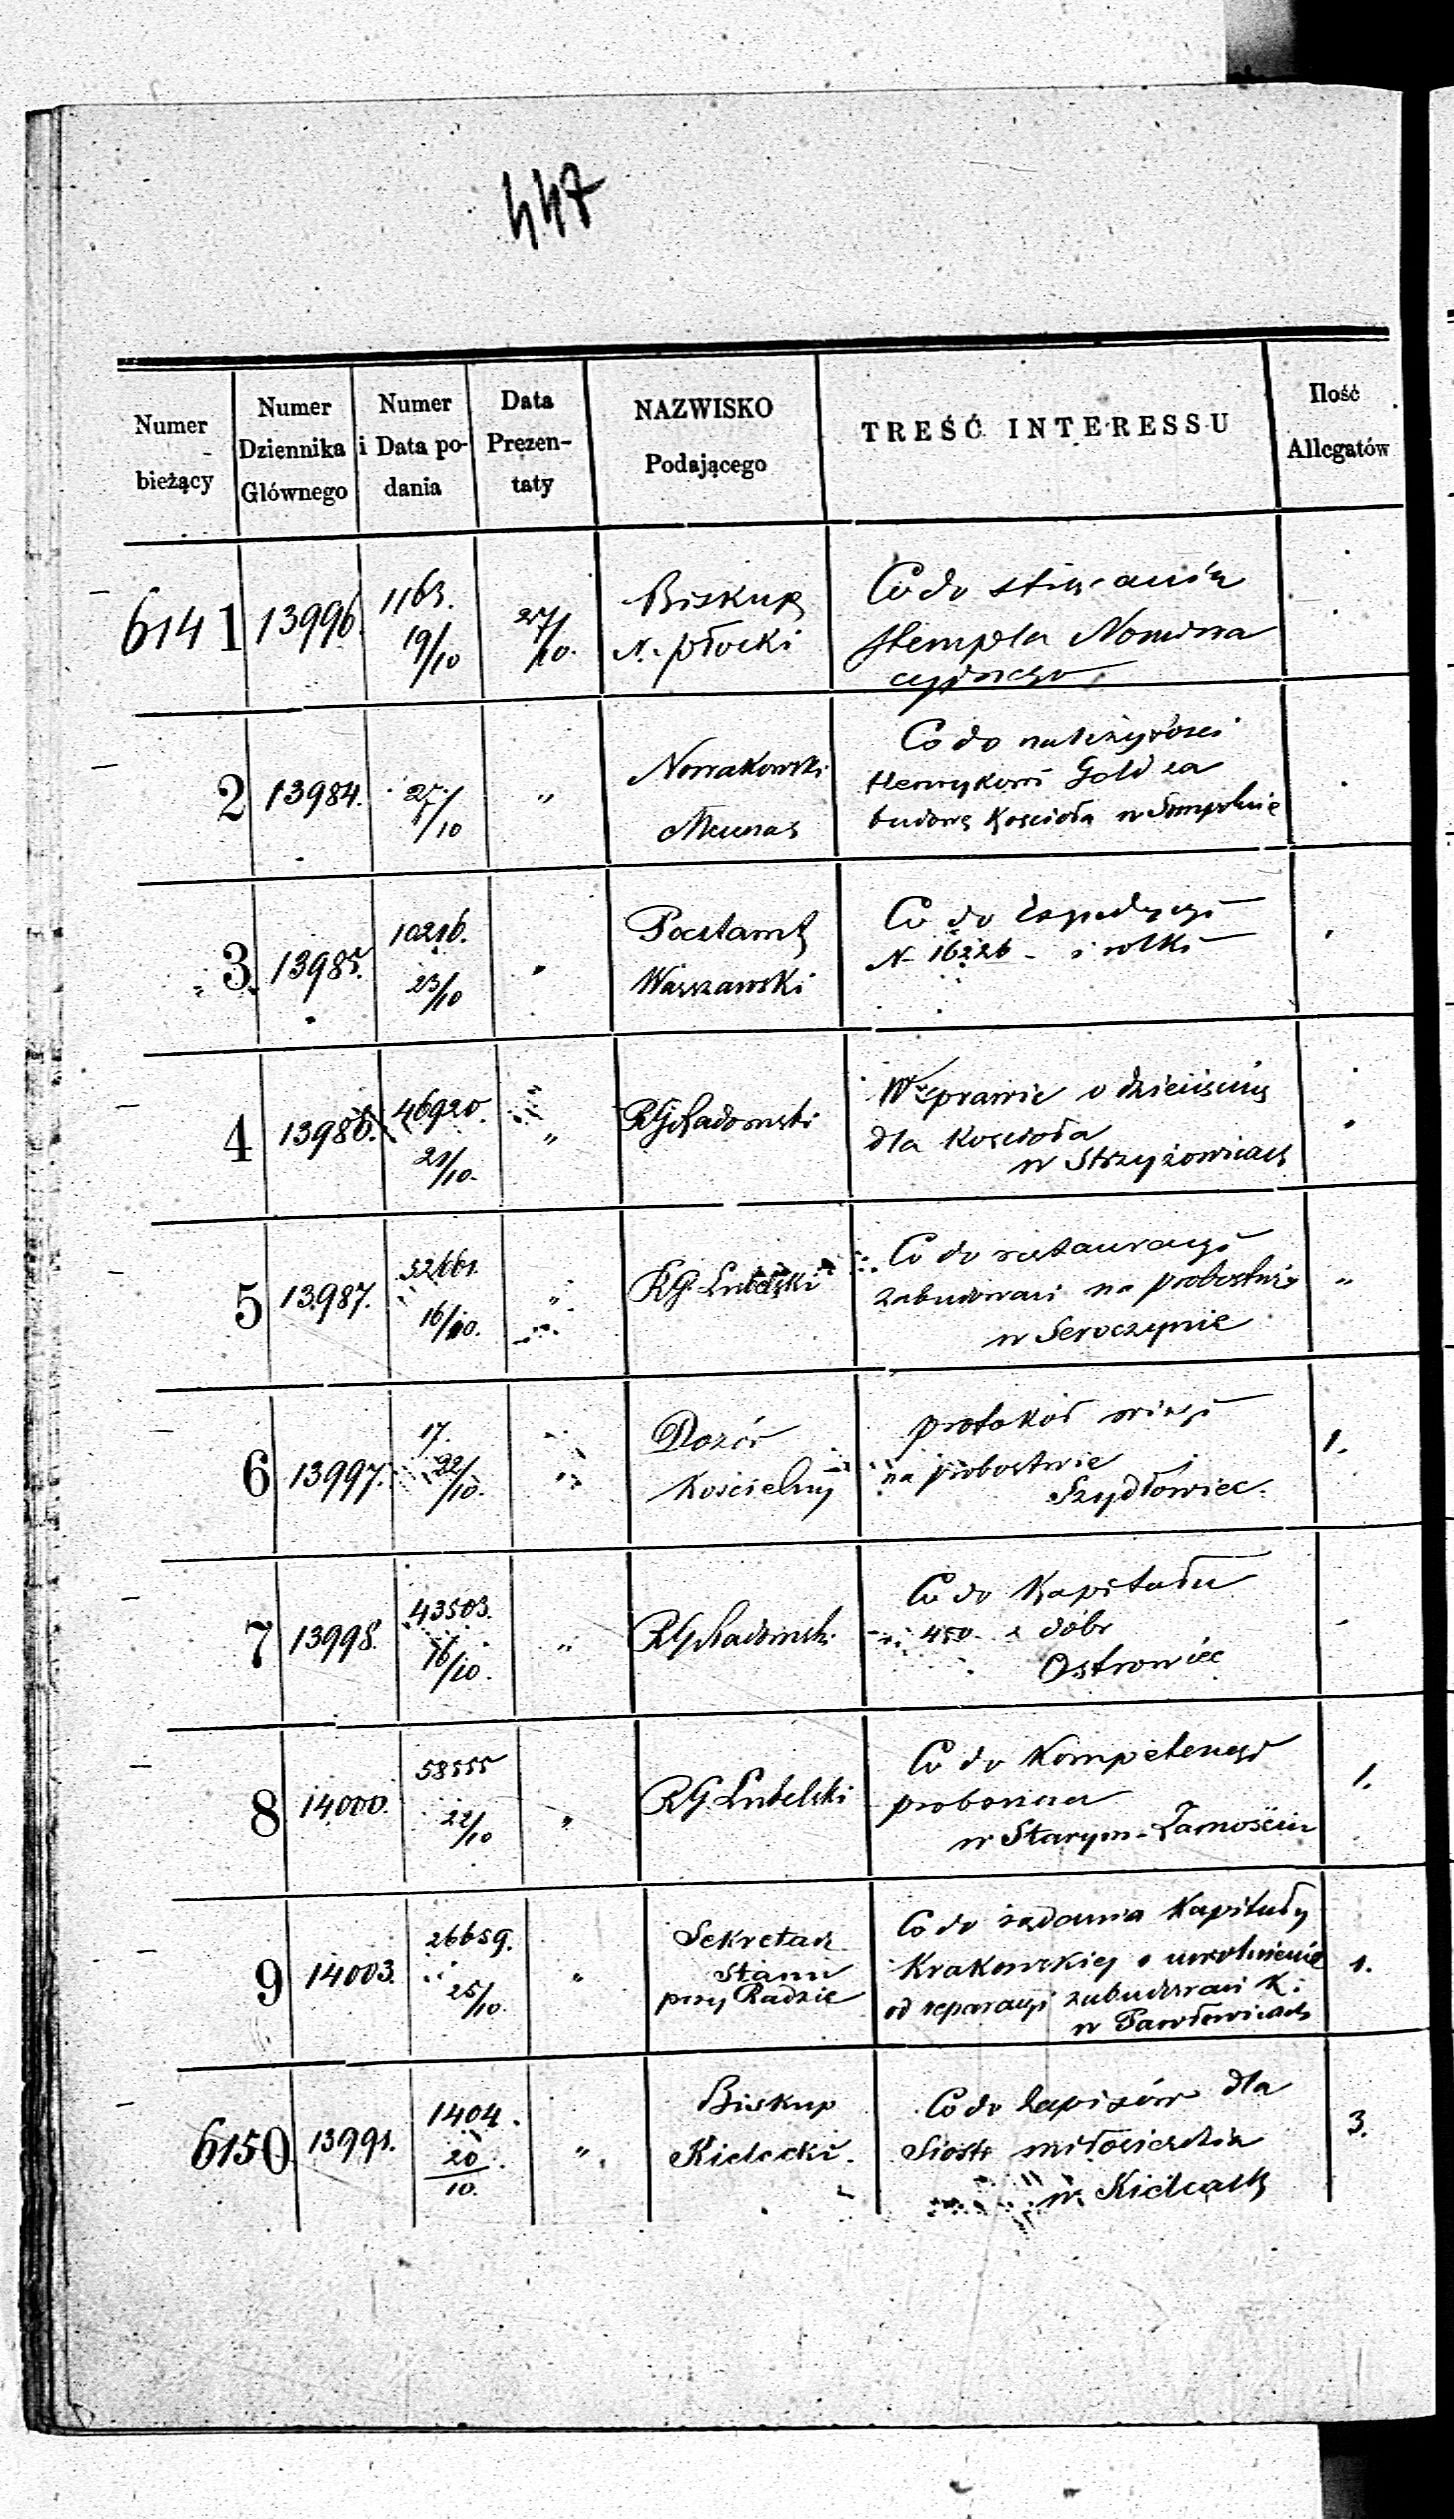 447
Numer bieżący | Numer Dziennika Głównego | Numer i Data podania | Data Prezentaty | NAZWISKO Podającego | TREŚĆ INTERESSU | Ilość Allegatów
6141 13996. 1163. 19/10 27/10. Biskup N. płocki Co do
stempla Nomina
cyjnego
2 13984. 27/10 „ Nowakowski Co do należytości
Henrykowi Gold za
budowę Kościoła w Sompolnie
3 13985. 10216. 23/10 „ Pocztamt Warszawski Co do expedycyi
N 16226 i
4 13986. 46920. 21/10. „ RG Radomski W sprawie o dziesięcinę
dla Kościoła
w Strzyżowicach
5 13987. 52661. 16/10. „ RG. Lubelski Co do restauracyi
zabudowań na probostwie
w Seroczynie „
6 13997. 17. 22/10. „ Dozór Kościelny protokół
na probostwie
Szydłowiec. 1.
7 13998. 43503. 16/10. „ RG Radomski Co do Kapitału
450 z dóbr
Ostrowiec
8 14000. 58555 22/10 „ RG. Lubelski Co do Kompetencyi
proboszcza
w Starym-Zamościu 1.
9 14003. 26659. 25/10. „ Sekretarz Stanu przy Radzie Co do żądania Kapituły
Krakowskiej o uwolnienie
od reparacyi zabudowań K.
w Pawłowicach 1.
6150 13991. 1404. 20/10. „ Biskup Kielecki. Co do zapisów dla
Sióstr miłosierdzia
w Kielcach 3.